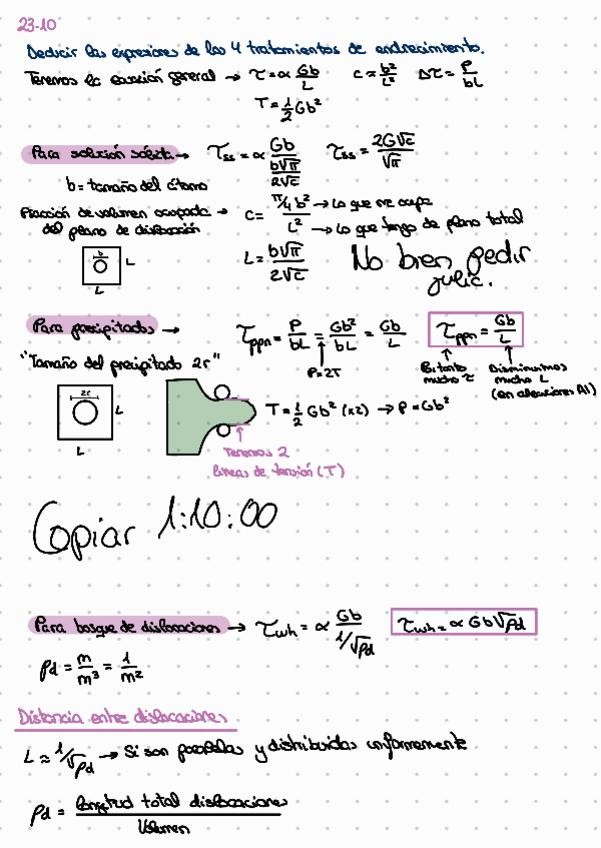 23-10
Deducir las expresiones de los 4 tratamientos de endurecimiento.
Tenemos la ecuación general → τ = α Gb/L   c ≈ b²/L²   Δτ = P/bL
T = 1/2 Gb²
Para solución sólida → τss = α Gb/(b√π/2√c)   τss = 2G√c/√π
b = tamaño del átomo
Fracción de volumen ocupada → c = (π/4 b²)/L² → Lo que me ocupa
del plano de dislocación → Lo que tengo de plano total
b L L
L = b√π/2√c
No bien pedir
julic.
Para precipitados → τppn = P/bL = Gb²/bL = Gb/L   τppn = Gb/L
P=2T
"Tamaño del precipitado 2r"
Por tanto mucho τ
Disminuimos mucho L (en aleaciones Al)
2r L L
T = 1/2 Gb² (x2) → P = Gb²
Tenemos 2
líneas de tensión (T)
Copiar 1:10:00
Para bosque de dislocaciones → τwh = α Gb/(1/√ρd)   τwh = α Gb√ρd
ρd = m/m³ = 1/m²
Distancia entre dislocaciones
L ≈ 1/√ρd → Si son paralelas y distribuidas uniformemente
ρd = longitud total dislocaciones
Volumen